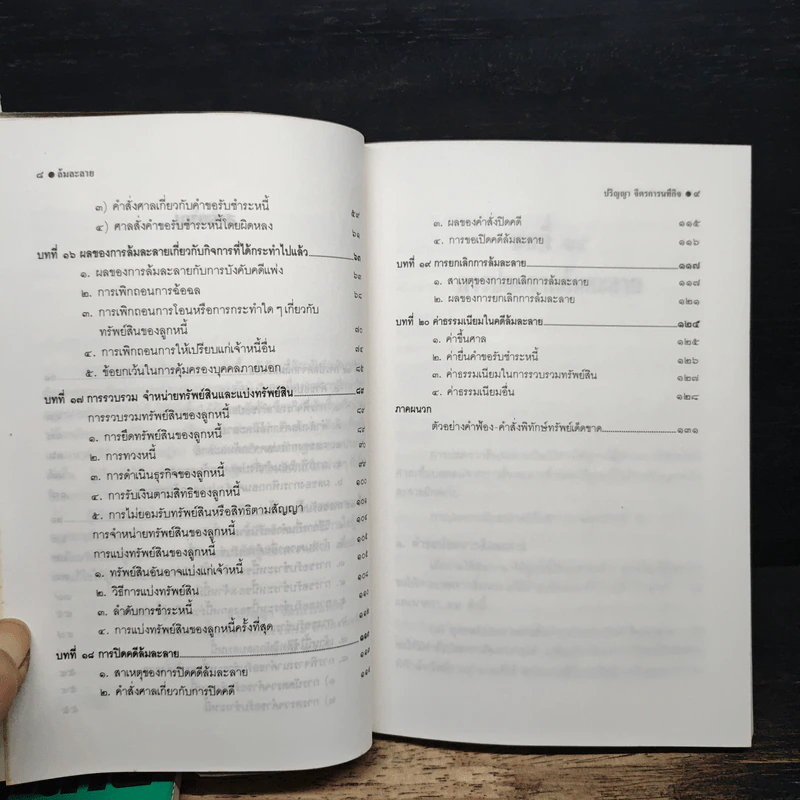 ๘ ● ล้มละลาย
๓) คำสั่งศาลเกี่ยวกับคำขอรับชำระหนี้ ๕๙
๔) ศาลสั่งคำขอรับชำระหนี้โดยผิดหลง ๖๑
บทที่ ๑๖ ผลของการล้มละลายเกี่ยวกับกิจการที่ได้กระทำไปแล้ว ๖๓
๑. ผลของการล้มละลายกับการบังคับคดีแพ่ง ๖๓
๒. การเพิกถอนการฉ้อฉล ๖๘
๓. การเพิกถอนการโอนหรือการกระทำใด ๆ เกี่ยวกับ
ทรัพย์สินของลูกหนี้ ๗๐
๔. การเพิกถอนการให้เปรียบแก่เจ้าหนี้อื่น
๕. ข้อยกเว้นในการคุ้มครองบุคคลภายนอก
บทที่ ๑๗ การรวบรวม จำหน่ายทรัพย์สินและแบ่งทรัพย์สิน
การรวบรวมทรัพย์สินของลูกหนี้
๑. การยึดทรัพย์สินของลูกหนี้
๒. การทวงหนี้
๓. การดำเนินธุรกิจของลูกหนี้
๔. การรับเงินตามสิทธิของลูกหนี้
๕. การไม่ยอมรับทรัพย์สินหรือสิทธิตามสัญญา
การจำหน่ายทรัพย์สินของลูกหนี้
การแบ่งทรัพย์สินของลูกหนี้
๑. ทรัพย์สินอันอาจแบ่งแก่เจ้าหนี้
๒. วิธีการแบ่งทรัพย์สิน
๓. ลำดับการชำระหนี้
๔. การแบ่งทรัพย์สินของลูกหนี้ครั้งที่สุด
บทที่ ๑๘ การปิดคดีล้มละลาย
๑. สาเหตุของการปิดคดีล้มละลาย
๒. คำสั่งศาลเกี่ยวกับการปิดคดี
ปริญญา จิตรการนทีกิจ ● ๙
๓. ผลของคำสั่งปิดคดี ๑๑๕
๔. การขอเปิดคดีล้มละลาย ๑๑๖
บทที่ ๑๙ การยกเลิกการล้มละลาย ๑๑๗
๑. สาเหตุของการยกเลิกการล้มละลาย ๑๑๗
๒. ผลของการยกเลิกการล้มละลาย ๑๒๑
บทที่ ๒๐ ค่าธรรมเนียมในคดีล้มละลาย ๑๒๕
๑. ค่าขึ้นศาล ๑๒๕
๒. ค่ายื่นคำขอรับชำระหนี้ ๑๒๖
๓. ค่าธรรมเนียมในการรวบรวมทรัพย์สิน ๑๒๗
๔. ค่าธรรมเนียมอื่น ๑๒๘
ภาคผนวก
ตัวอย่างคำฟ้อง-คำสั่งพิทักษ์ทรัพย์เด็ดขาด ๑๓๑